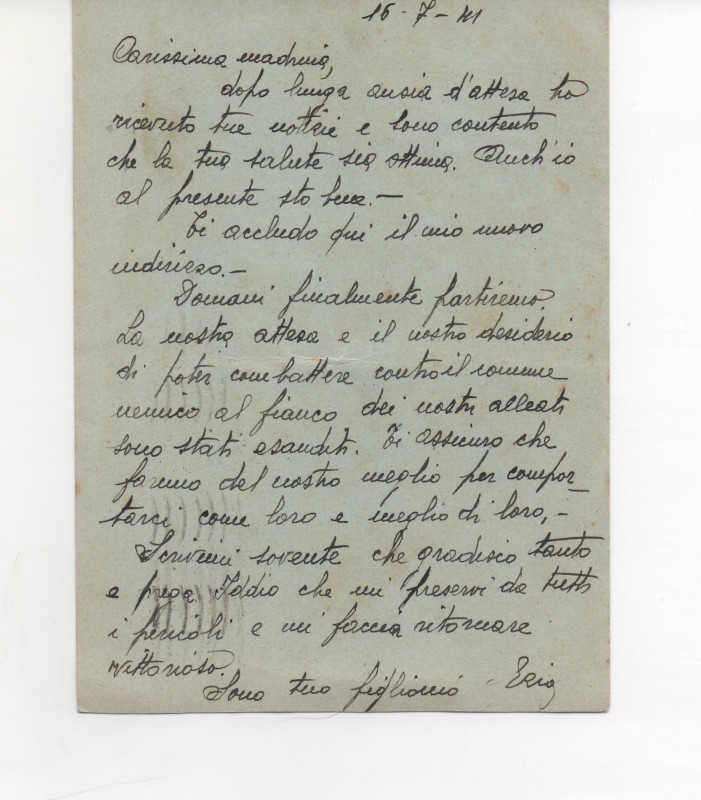 15-7-41
Carissima madrina,
dopo lunga ansia d'attesa ho
ricevuto tue notizie e sono contento
che la tua salute sia ottima. Anch'io
al presente sto bene.-
Ti accludo qui il mio nuovo
indirizzo.-
Domani finalmente partiremo.
La nostra attesa e il nostro desiderio
di poter combattere contro il comune
nemico al fianco dei nostri alleati
sono stati esauditi. Ti assicuro che
faremo del nostro meglio per compor-
tarci come loro e meglio di loro,-
Scrivimi sovente che gradisco tanto
e prega Iddio che mi preservi da tutti
i pericoli e mi faccia ritornare
vittorioso.
Sono tuo figlioccio Ezio